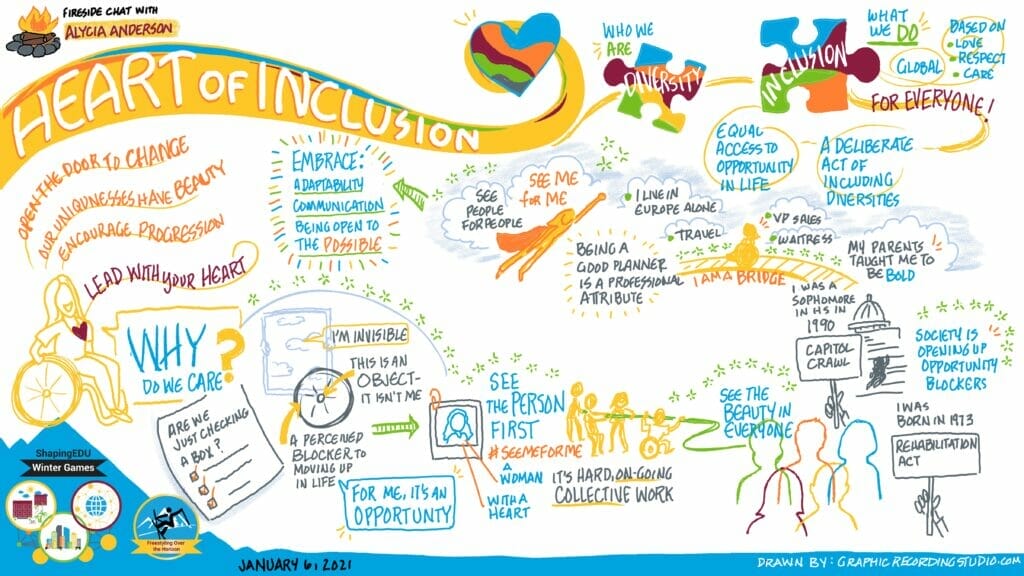 FIRESIDE CHAT WITH
ALYCIA ANDERSON
HEART OF INCLUSION
WHO WE
ARE
DIVERSITY
INCLUSION
WHAT
WE DO
GLOBAL
BASED ON
• LOVE
• RESPECT
• CARE
FOR EVERYONE!
EQUAL
ACCESS TO
OPPORTUNITY
IN LIFE
A DELIBERATE
ACT OF
INCLUDING
DIVERSITIES
OPEN THE DOOR TO CHANGE
OUR UNIQUNESSES HAVE BEAUTY
ENCOURAGE PROGRESSION
LEAD WITH YOUR HEART
EMBRACE:
ADAPTABILITY
COMMUNICATION
BEING OPEN TO
THE POSSIBLE
SEE
PEOPLE
FOR PEOPLE
SEE ME
for ME
• I LIVE IN
EUROPE ALONE
• TRAVEL
• VP SALES
• WAITRESS
BEING A
GOOD PLANNER
IS A PROFESSIONAL
ATTRIBUTE
I AM A BRIDGE
MY PARENTS
TAUGHT ME TO
BE BOLD
WHY
DO WE CARE?
ARE WE
JUST CHECKING
A BOX?
I'M INVISIBLE
THIS IS AN
OBJECT-
IT ISN'T ME
A PERCEIVED
BLOCKER TO
MOVING UP
IN LIFE
FOR ME, IT'S AN
OPPORTUNITY
SEE
THE PERSON
FIRST
#SEEMEFORME
A
WOMAN
WITH A
HEART
IT'S HARD, ON-GOING
COLLECTIVE WORK
SEE THE
BEAUTY IN
EVERYONE
I WAS A
SOPHOMORE
IN HS IN
1990
CAPITOL
CRAWL
SOCIETY IS
OPENING UP
OPPORTUNITY
BLOCKERS
I WAS
BORN IN 1973
REHABILITATION
ACT
ShapingEDU
Winter Games
Freestyling Over
the Horizon
JANUARY 6, 2021
DRAWN BY: GRAPHICRECORDINGSTUDIO.COM